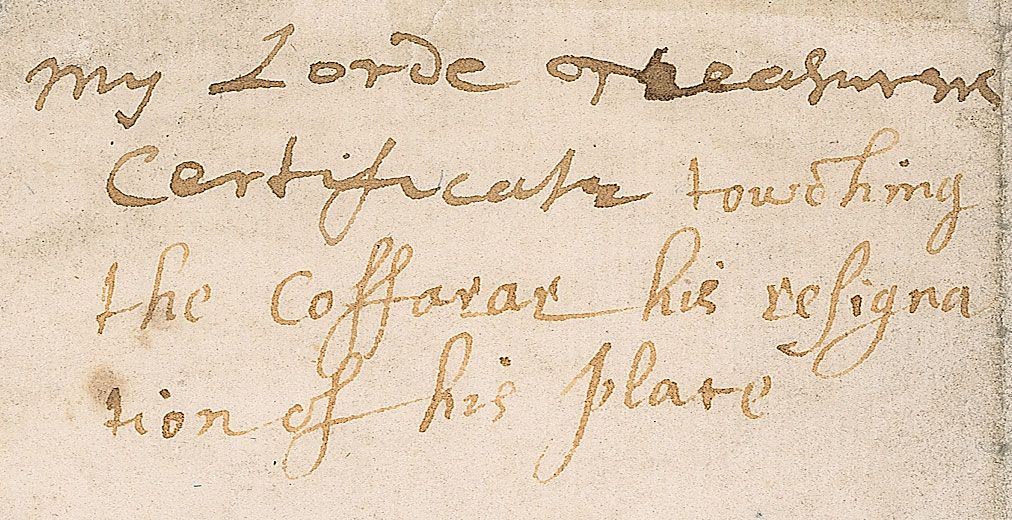 my Lorde Treasurers
Certificate towching
the Coffarar his resigna
tion of his place